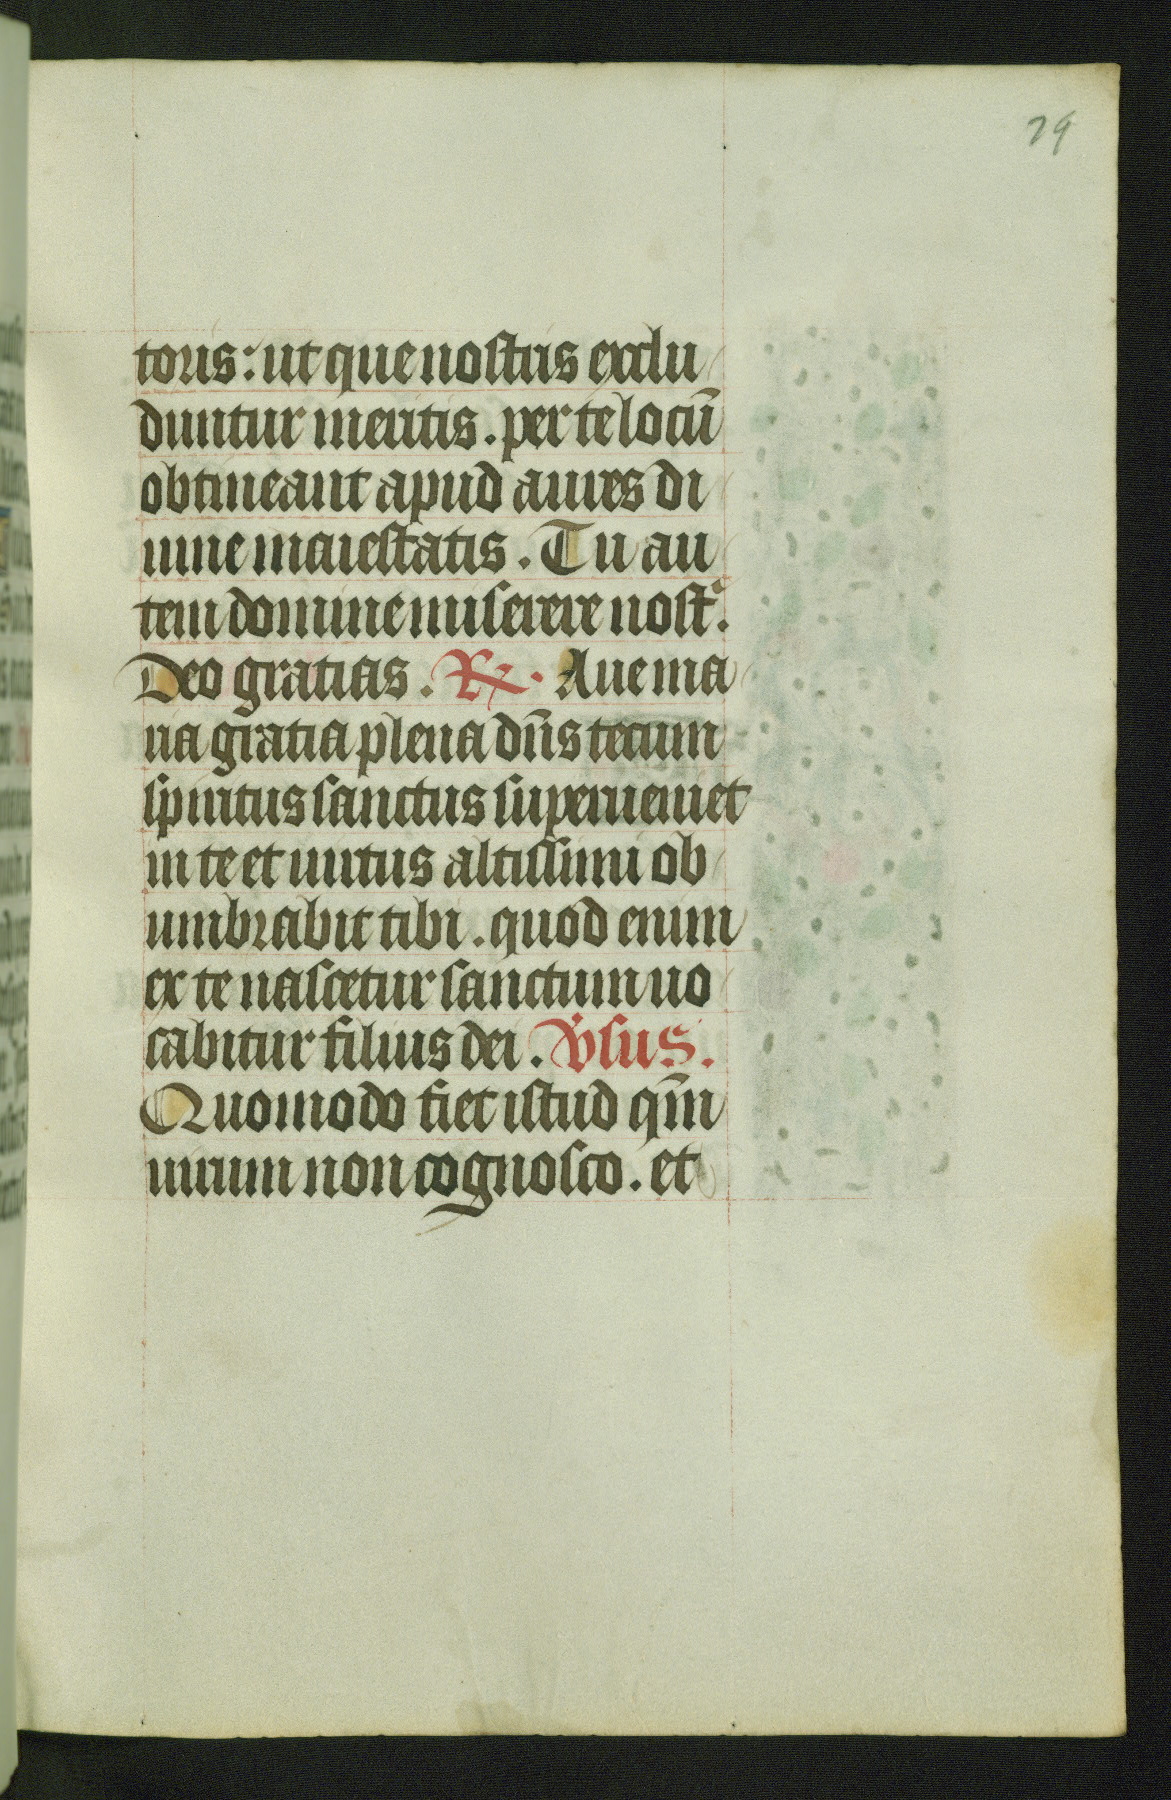 79
toris: ut que nostris exclu
duntur meritis. per te locū
obtineant apud aures di
uine maiestatis. Tu au
tem domine miserere nost̾.
Deo gratias. ℟. Aue ma
ria gratia plena dn̄s tecum
spiritus sanctus superueniet
in te et uirtus altissimi ob
umbrabit tibi. quod enim
ex te nascetur sanctum uo
cabitur filius dei. v̾sus.
Quomodo fiet istud qm̄
uirum non cognosco. et